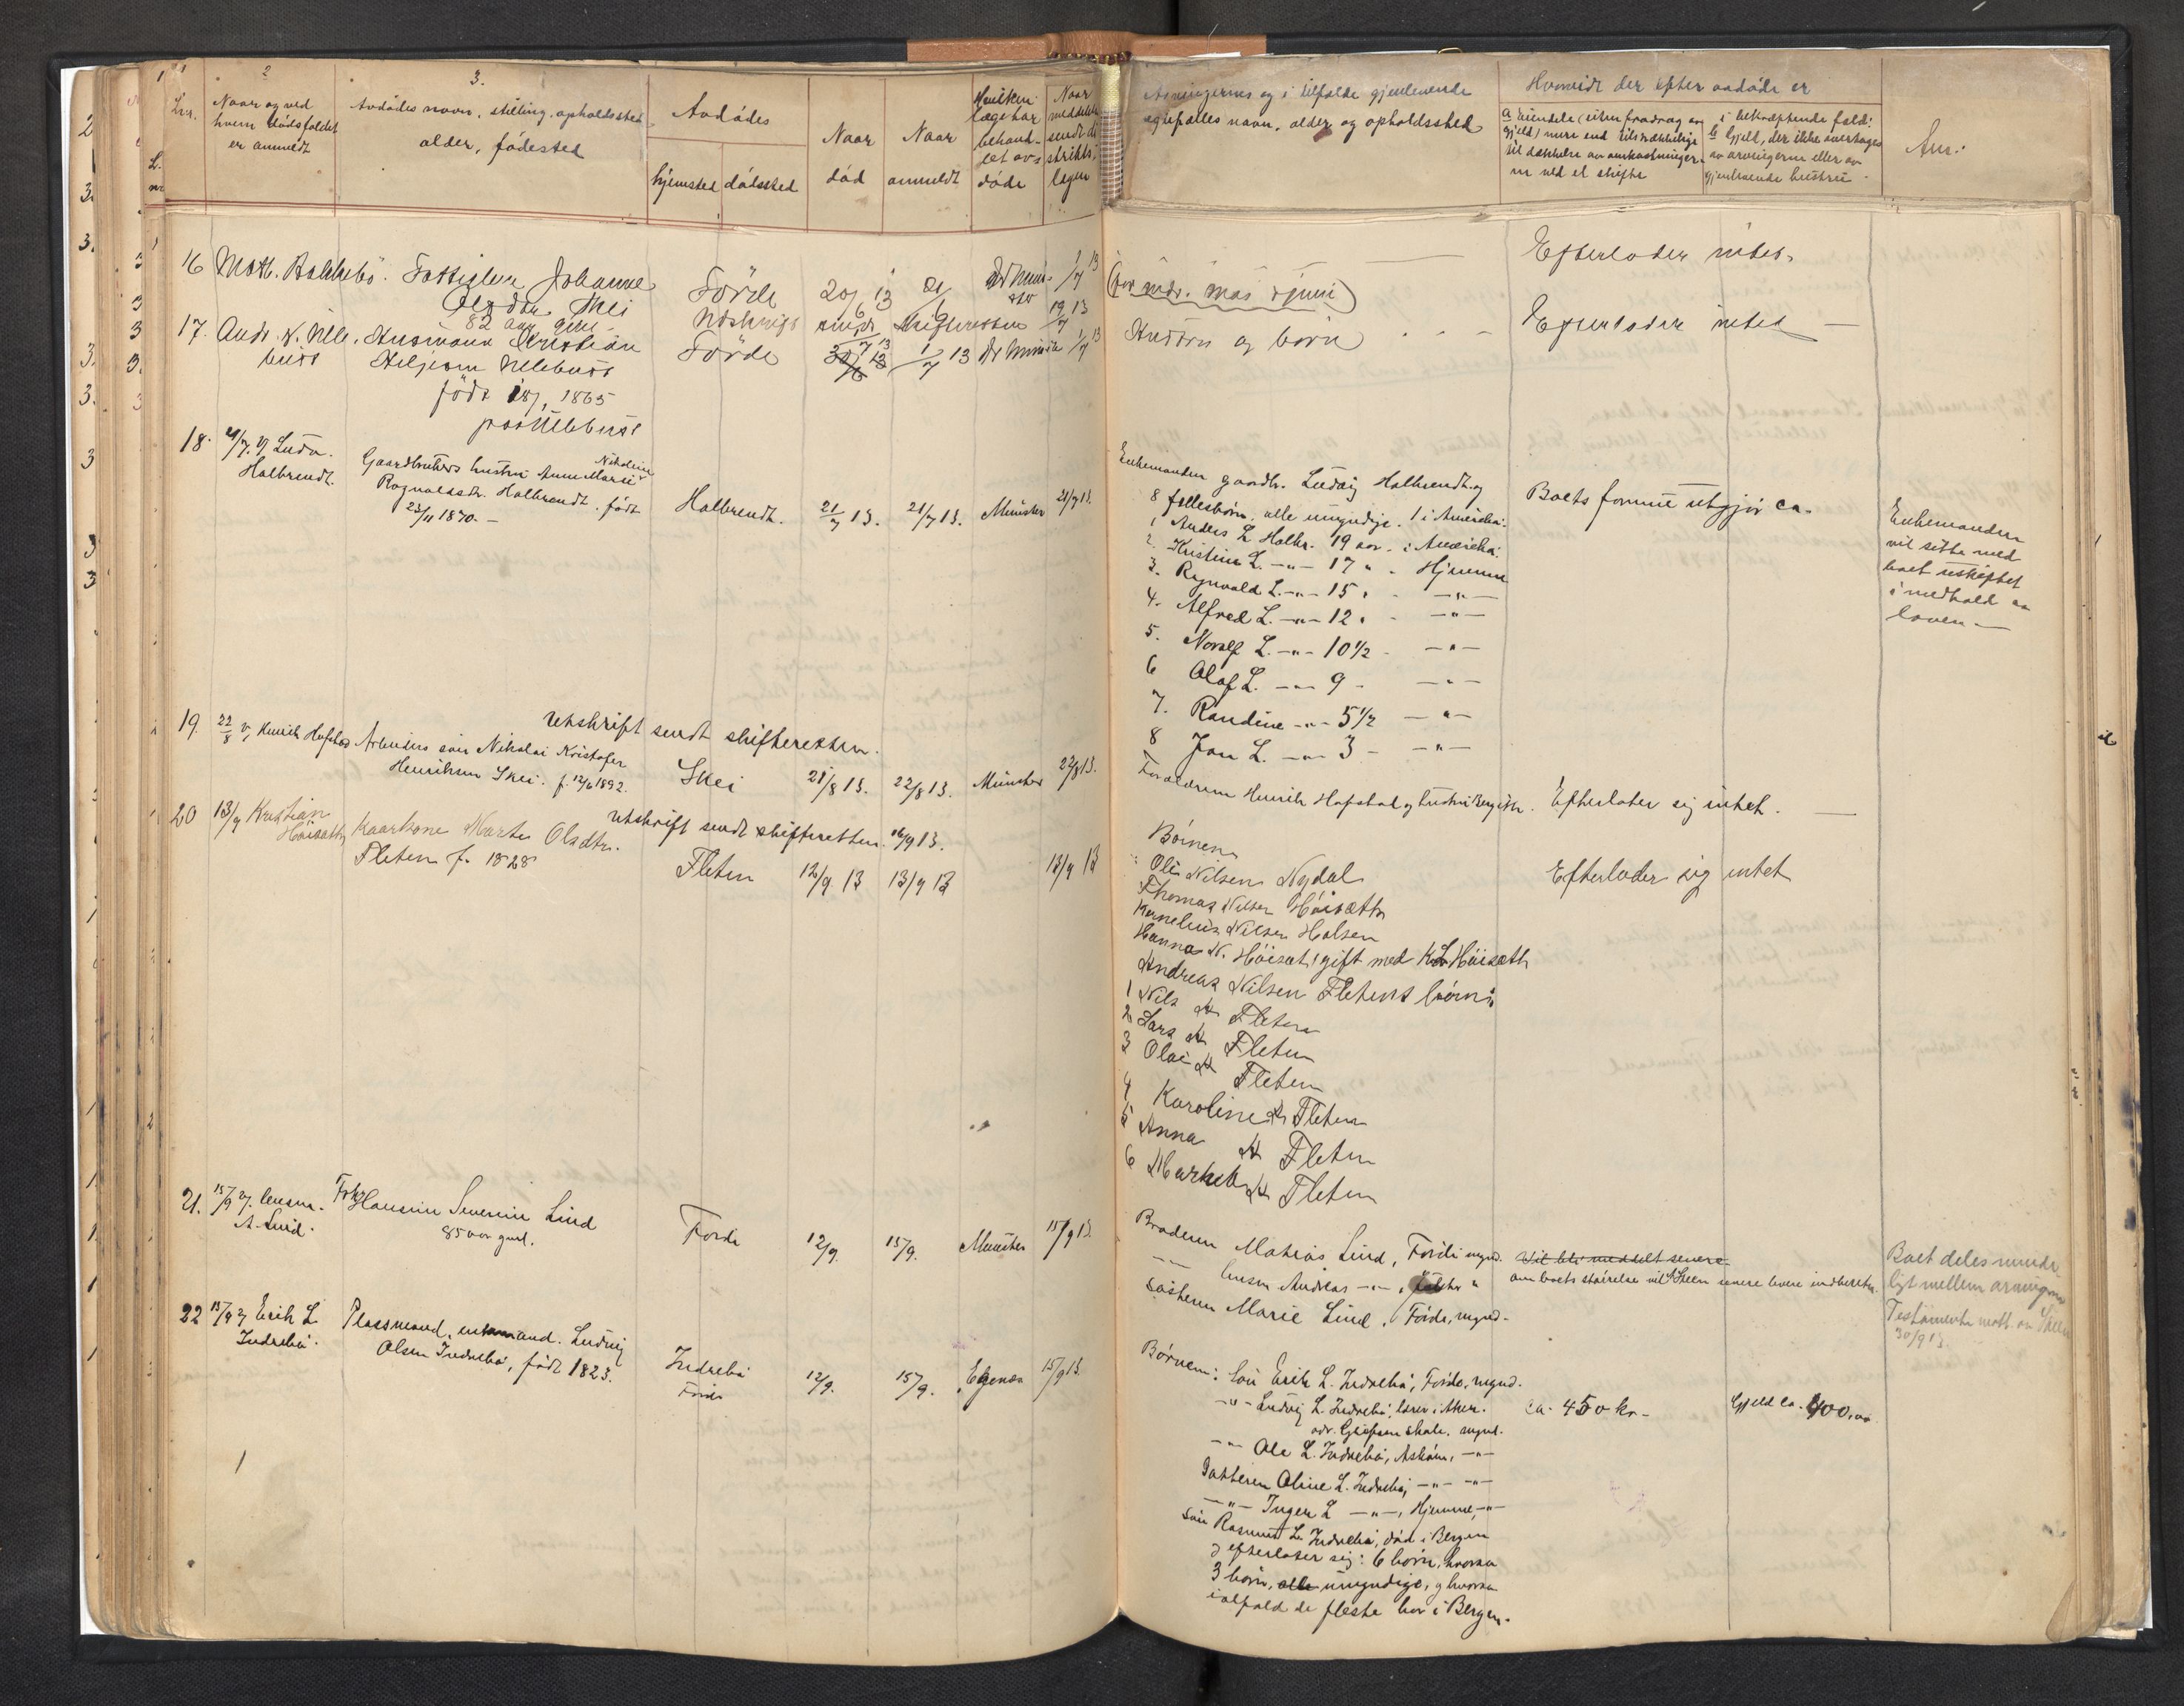 1
2
3.
Lnr.
Naar og ved
hvem dødsfaldet
er anmeldt
Avdødes navn, stilling, opholdssted
alder, fødested
Avdødes
hjemsted dødssted
Naar
død
Naar
anmeldt
Hvilken
læge har
behand-
let av-
døde
Naar
meddelelse
sendt di-
strikts-
lægen
Arvingernes og i tilfælde gjenlevende
egtefælles navn, alder og opholdssted
Hvorvidt der efter avdøde er
a eiendele (uten fradrag av
gjeld) mere end tilstrækkelige
til dækkelse av omkostninger-
ne ved et skifte
i bekræftende fald:
b Gjeld, der ikke overtages
av arvingerne eller av
gjenlevende hustru
Anm:
16 Math. Bakkebø. Fattiglem Johanne
Olsdtr. Skei
82 aar gml.
Førde 20/6 13 21/6 1/7 13
Efterlader intet.
17. Andr. K. Ulle-
bust
Husmann Kristian
Ullebust
født 18/1 1865
paa Ullebust
Utskrift sendt Skifteretten 19/7 13
Førde 1/7 13 Dr Münster 1/7 13
Hustru og børn
Efterlader intet
18. 21/7. v/ Ludv.
Halbrendt.
Gaardbrukers hustru Anne Marie Nikoline
Ragnvaldsdtr. Halbrendt. født
23/11 1870. -
Halbrendt. 21/7 13. 21/7 13. Münster 21/7 13.
Enkemanden gaardbr. Ludvig Halbrendt og
8 fællesbørn, alle umyndige. 1 i Amerika.
1 Anders L. Halbr. 19 aar. i Amerika.
2. Kristine L. -"- 17 " - Hjemme
3. Ragnvald L. -"- 15 " - -"-
4. Alfred L. -"- 12 " - -"-
5. Norolf L. -"- 10 1/2 - -"-
6 Olaf L. -"- 9 - -"-
7. Randine -"- 5 1/2 -"-
8 Jon L. -"- 3 - -"-
Boets formue utgjør ca.
Enkemanden
vil sitte med
boet uskiftet
i medhold av
loven. -
Utskrift sendt skifteretten.
19. 22/8 v/ Henrik Hafstad
Arbeiders søn Nikolai Kristofer
Henriksen Skei. f. 12/6 1892.
Skei 21/8 13. 22/8 13. Münster 22/8 13.
Forældrene Henrik Hafstad og hustru Bergithe. Efterlater sig intet.
Utskrift sendt skifteretten 16/9 13.
20 13/9 Kristian
Høisæth
Kaarkone Marte Olsdtr.
Fleten f. 1828
Fleten 12/9 13 13/9 13 13/9 13
Børnene
Ole Nilsen Nydal
Thomas Nilsen Høisæth
Kornelius Nilsen Halsen
Hanna N. Høisæth gift med K. L. Høisæth
Andreas Nilsen Fletens børn:
1 Nils A. Fleten
2 Lars A. Fleten
3 Olai A. Fleten
4 Karoline A. Fleten
5 Anna A. Fleten
6 A. Fleten
Efterlader sig intet
21. 15/9 v. lensm.
A. Lind.
Frk. Hansine Severine Lind
85 aar gml.
Førde 12/9. 15/9. Münster 15/9 13.
Broderen Mathias Lind, Førde mynd.
-"- lensm. Andreas -"-, Jølster "
Søsteren Marie Lind, Førde, mynd.
Vil bli meddelt senere
om boets størrelse vil Skeen senere levere indberetn.
Boet deles minde-
ligt mellem arvingene
Testamente mott. av Skeen
30/9 13.
22 15/9 v/ Erik L.
Indrebø.
Plassmand, enkemand. Ludvig
Olsen Indrebø, født 1823.
Indrebø
Førde
12/9. 15/9. 15/9 13.
Børnene: Søn Erik L. Indrebø, Førde, mynd.
-"- Ludvig L. Indrebø, lærer i Aker.
adr. skole, mynd.
-"- Ole L. Indrebø, Askøen, -"-
Datteren Oline L. Indrebø, -"- -"-
-"- Inger L. -"-, Hjemme, -"-
Søn Rasmus L. Indrebø, død i Bergen
og efterlater sig: 6 børn, hvorav
3 børn, alle umyndige, og hvorav
ialfald de fleste bor i Bergen.
ca. 450 kr.
Gjeld ca. 400,00